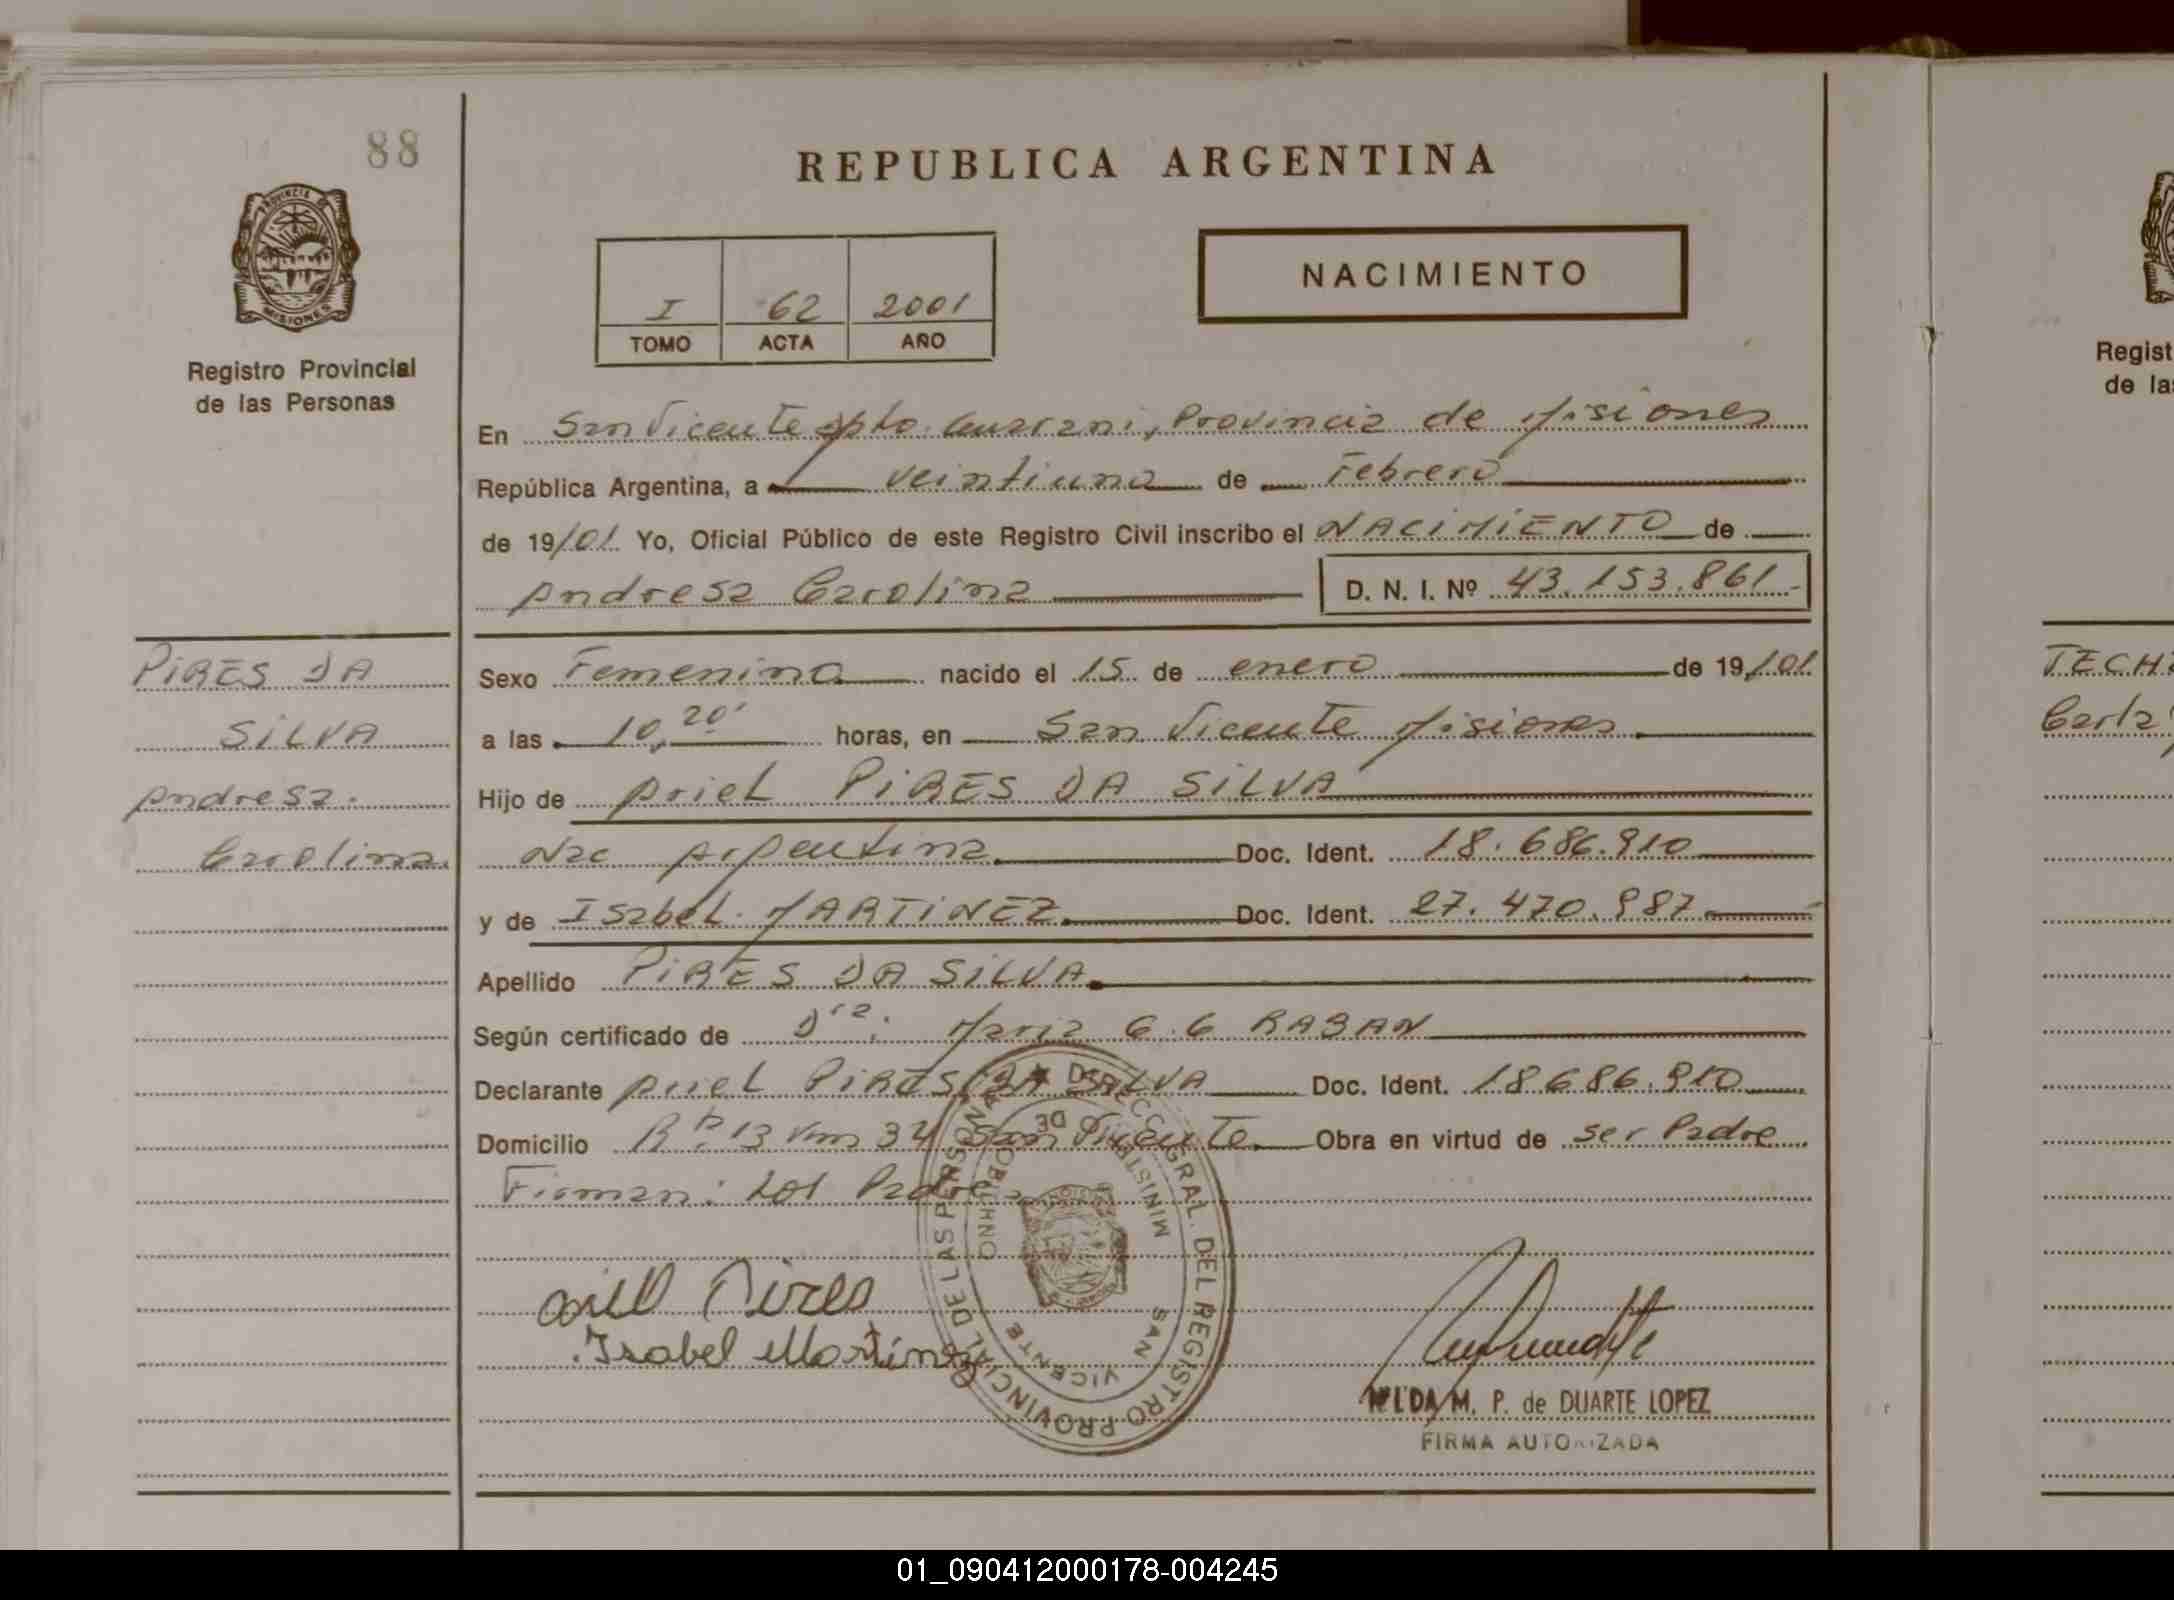 88
PROVINCIA DE
MISIONES
Registro Provincial
de las Personas
PIRES DA
SILVA
Andresa
Carolina.
REPUBLICA ARGENTINA
I 62 2001
TOMO ACTA AÑO
NACIMIENTO
En San Vicente Dpto. Guarani, Provincia de Misiones
República Argentina, a veintiuno de Febrero
de 19/01. Yo, Oficial Público de este Registro Civil inscribo el NACIMIENTO de
Andresa Carolina D. N. I. Nº 43.153.861-
Sexo Femenino nacido el 15 de enero de 19/01.
a las 10,20' horas, en San Vicente Misiones
Hijo de Ariel PIRES DA SILVA
Nac Argentina Doc. Ident. 18.686.910
y de Isabel MARTINEZ Doc. Ident. 27.470.987
Apellido PIRES DA SILVA
Según certificado de Dra: Maria G. G RABAN
Declarante Ariel PIRES DA SILVA Doc. Ident. 18686.910
Domicilio R 13 Km 34 San Vicente Obra en virtud de ser Padre
Firman: Los Padres
DIRECC. GRAL. DEL REGISTRO PROVINCIAL DE LAS PERSONAS
MINISTERIO DE GOBIERNO
SAN VICENTE
Ariel Pires
Isabel Martinez
NILDA M. P. de DUARTE LOPEZ
FIRMA AUTORIZADA
Regist
de la
TECH
Carla
01_090412000178-004245